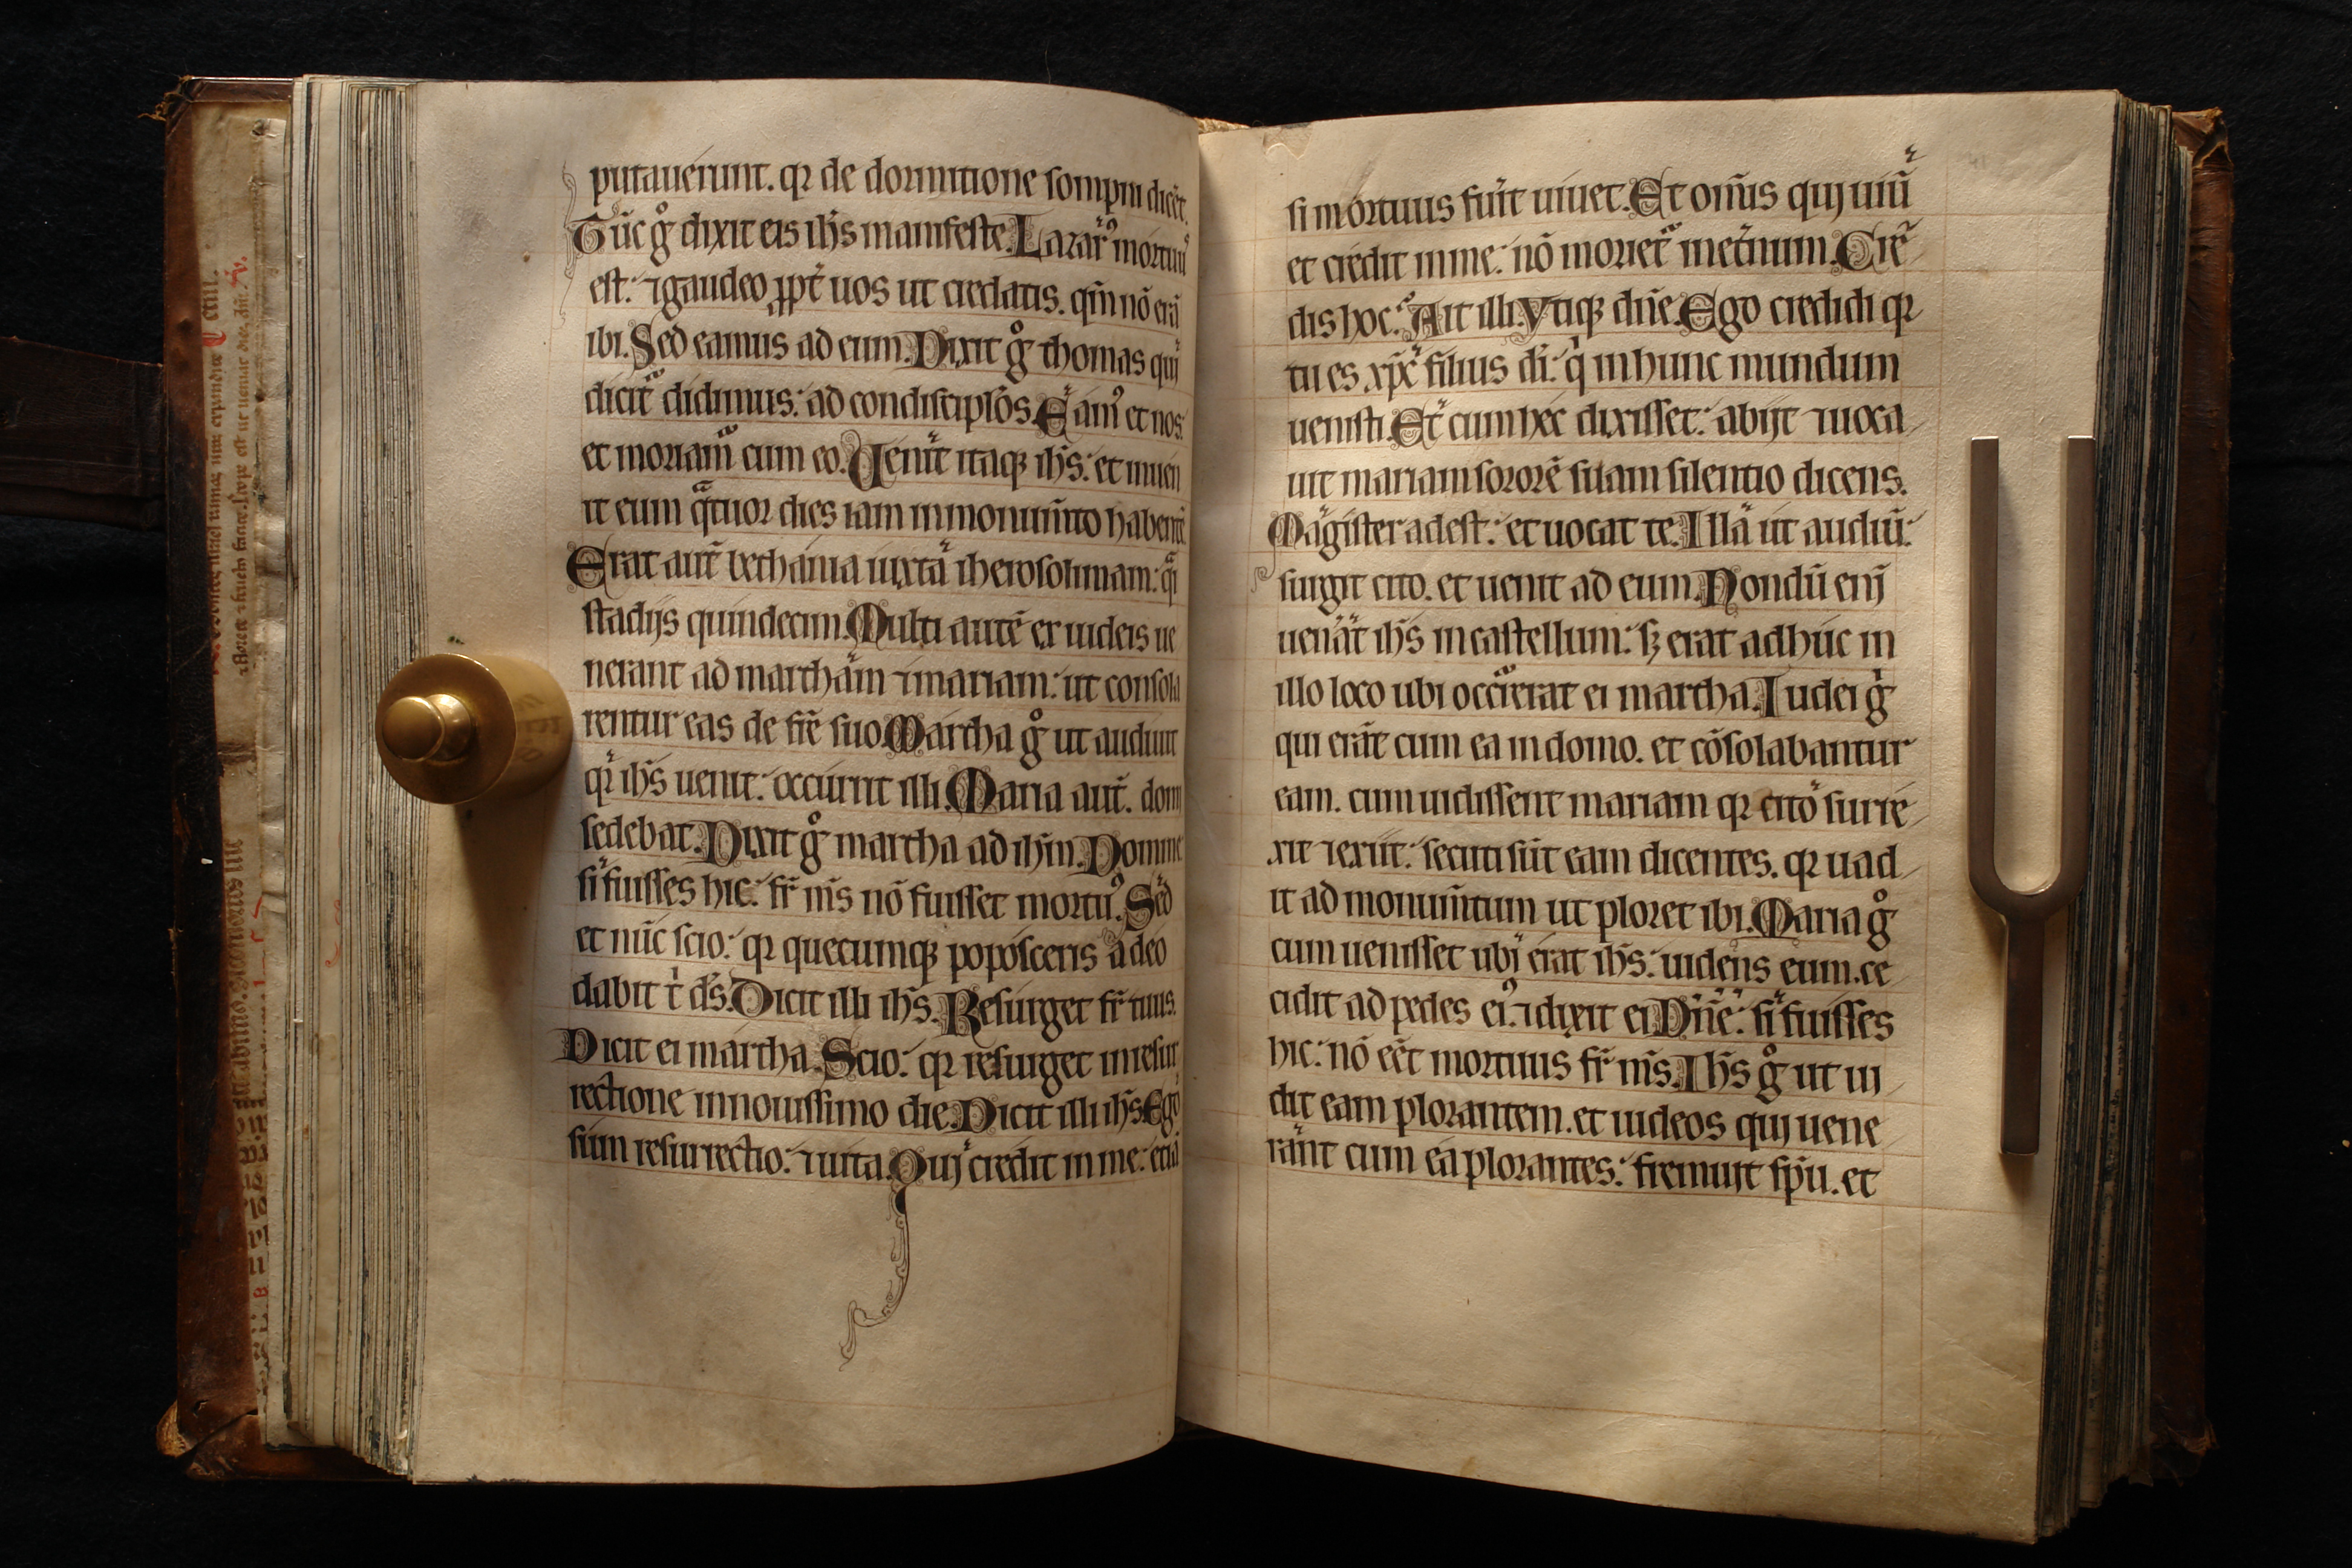 putauerunt. qr de dormitione sompni dicet̄.
Tūc gͦ dixit eis ih̄s manifeste. Lazarꝰ mortuꝰ
est: ⁊ gaudeo ꝓpt̄ uos ut credatis. qm̄ nō erā
ibi. Sed eamus ad eum. Dixit gͦ thomas qui
dicit̄ didimus: ad condisciplōs. Eamꝰ et nos:
et moriam̄ cum eo. Uenit̄ itaqꝫ ih̄s: et inuen
it eum qᷓtuor dies iam in monum̄to habentē
Erat aut̄ bethania iuxta iherosolimam: qᷓi
stadijs quindecim. Multi autē ex iudeis ue
nerant ad martham ⁊ mariam: ut consola
rentur eas de fr̄e suo. Martha gͦ ut audiuit
qr ih̄s uenit: occurrit illi. Maria aut̄. domi
sedebat. Dixit gͦ martha ad ih̄m. Domine
si fuisses hic: fr̄ m̄s nō fuisset mortuꝰ. Sed
et nūc scio: qr quecumqꝫ poposceris a deo
dabit t̄ ds̄. Dicit illi ih̄s. Resurget fr̄ tuus.
Dicit ei martha. Scio: qr resurget in resur
rectione in nouissimo die. Dicit illi ih̄s. Ego
sum resurrectio: ⁊ uita. Qui credit in me: etiā
si mortuus fuīt uiuet. Et om̄is qui uiū
et credit in me: nō moriet̄ in et̄num. Cre
dis hoc: Ait illi. Vtiqꝫ dn̄e. Ego credidi qr
tu es xp̄c filius di: q in hunc mundum
uenisti. Et cum hec dixisset: abijt ⁊ uoca
uit mariam sororē suam silentio dicens.
Magister adest: et uocat te. Illa ut audiū:
surgit cito. et uenit ad eum. Nondū eni
uenāt ih̄s in castellum: sꝫ erat adhuc in
illo loco ubi occūrerat ei martha. Iudei gͥ
qui erāt cum ea in domo. et cōsolabantur
eam. cum uidissent mariam qr cito surre
xit ⁊ exiit: secuti sūt eam dicentes. qr uad
it ad monum̄tum ut ploret ibi. Maria gͦ
cum uenisset ubi erat ih̄s: uidens eum. ce
cidit ad pedes eiꝰ. ⁊ dixit ei. Dn̄e: si fuisses
hic: nō eēt mortuus fr̄ m̄s. Ih̄s gͦ ut ui
dit eam plorantem. et iudeos qui uene
rant cum ea plorantes: fremuit sp̄u. et